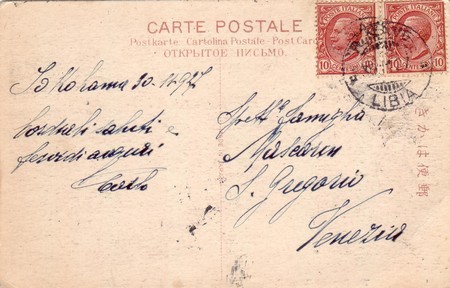 CARTE POSTALE
Postkarte Cartolina Postale Post Card
ОТКРЫТОЕ ПИСЬМО.
POSTE ITALIANE
POSTE ITALIANE
10 10
10 10
LIBIA
Yokohama 30.
Cordiali saluti e
fervidi auguri
Spett. Famiglia
Mascarin
S. Gregorio
Venezia
きかは便郵